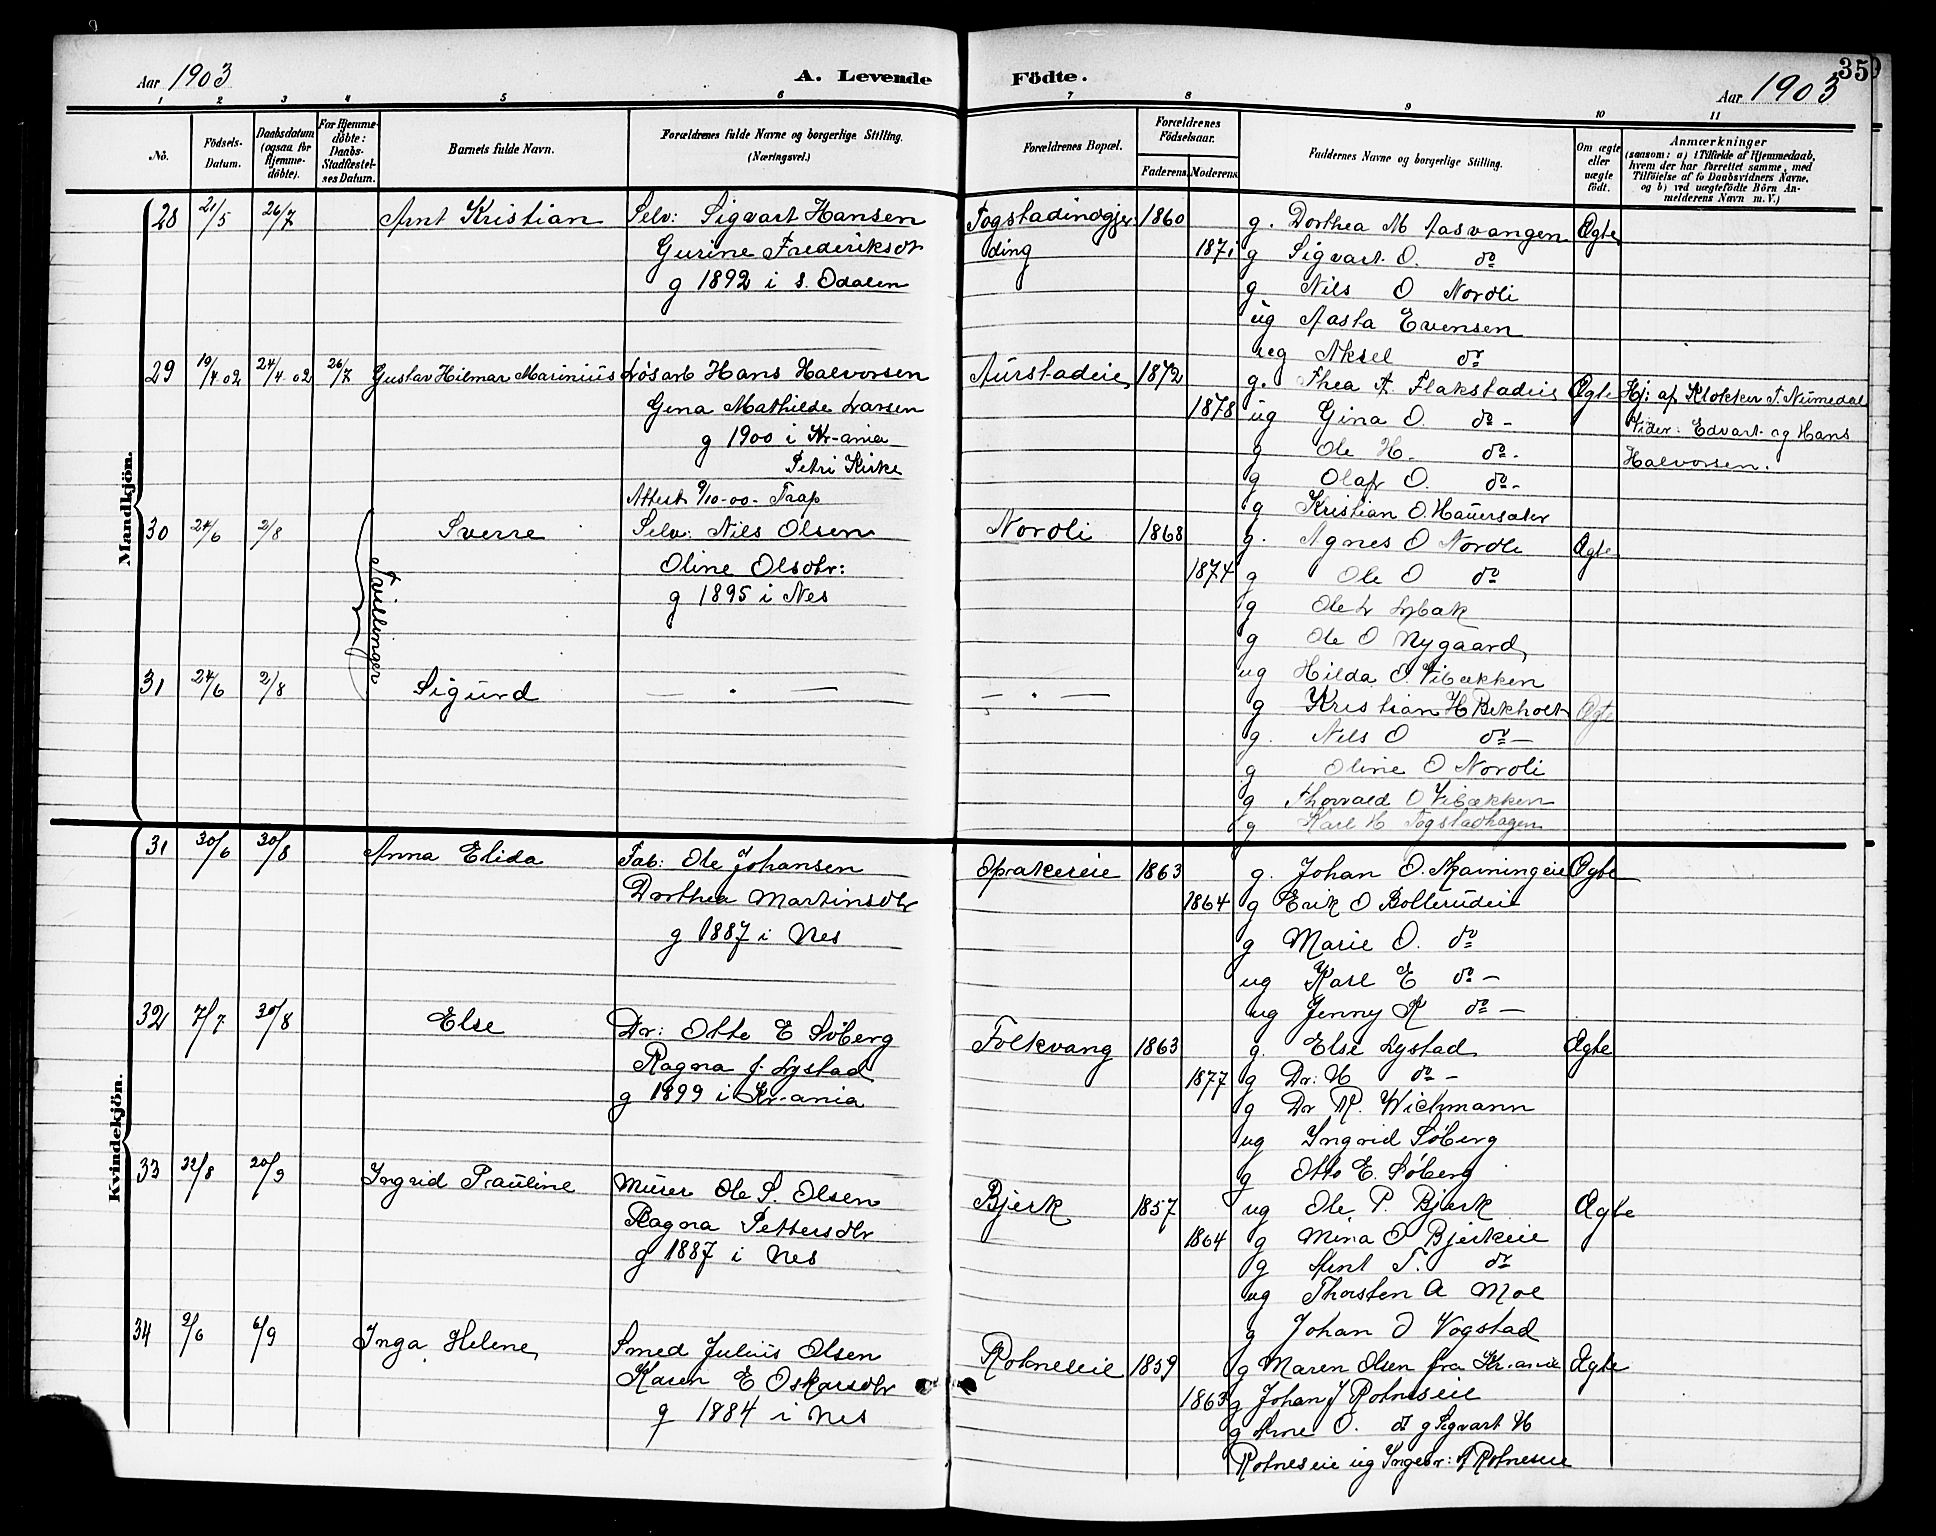 Aar 1903
A. Levende Födte.
35
Aar 1903
1 2 3 4 5 6 7 8 9 10 11
No.
Födsels-Datum.
Daabsdatum (ogsaa for Hjemme-döbte).
For Hjemme-döbte: Daabs-Stadfæstel-ses Datum.
Barnets fulde Navn.
Forældrenes fulde Navne og borgerlige Stilling. (Næringsvei.)
Forældrenes Bopæl.
Forældrenes Födselsaar.
Faderens. Moderens.
Faddernes Navne og borgerlige Stilling.
Om ægte eller uægte födt.
Anmærkninger (saasom: a) i Tilfælde af Hjemmedaab, hvem der har forrettet samme, med Tilföielse af to Daabsvidners Navne, og b) ved uægtefödte Börn An-melderens Navn m. V.)
Mandkjön.
28 21/5 26/7 Arnt Kristian Selv: Sigvart Hansen Togstadindgjer- 1860 g. Dorthea M Aasvangen Ægte
Gurine Frederiksdt ding 1871 g Sigvart O. do
g 1892 i S. Odalen g Nils O Nordli
ug Aasta Evensen
ug Aksel do
29 19/4 02 24/4 02 26/7 Gustav Hilmar Marinius Løsarb Hans Halvorsen Aurstadeie 1872 g. Thea A. Flakstadeie Ægte Hj: af Klokker T. Numedal
Gina Mathilde Larsen 1878 ug Gina O do - Vidner: Edvart og Hans
g 1900 i Kr-ania g Ole H. do - Halvorsen.
Petri Kirke g Olaf O. do -
Attest 9/10-00- Traap g Kristian O. Hauersæter
30 24/6 2/8 Sverre Selv: Nils Olsen Nordli 1868 g. Agnes O Nordli Ægte
Tvillinger
Oline Olsdtr: 1874 g Ole O do
g 1895 i Nes g Ole L Lybæk
g Ole O Nygaard
ug Hilda O. Vibækken
31 24/6 2/8 Sigurd — . — — . — g Kristian H Bekholt Ægte
g. Nils O do —
g Oline O Nordli
g Thorvald O Vibækken
g Karl H Togstadhagen
Kvindekjön.
31 30/6 30/8 Anna Elida Fab: Ole Johansen Oprakereie 1863 g. Johan O. Ægte
Dorthea Martinsdtr 1864 g Erik O Bollerudeie
g 1887 i Nes g Marie O. do
ug Karl E do —
ug Jenny K do —
32 7/7 30/8 Else Dr: Otto E Søberg Folkvang 1863 g. Else Lystad Ægte
Ragna J. Lystad 1877 g Dr: H do -
g 1899 i Kr-ania g Dr K. Wickmann
ug Yngrid Søberg
g Otto E. Søberg
33 22/8 20/9 Ingrid Pauline Murer Ole P. Olsen Bjerk 1857 ug Ole P. Bjerk Ægte
Ragna Pettersdtr 1864 g Mina O Bjerkeie
g 1887 i Nes g Arnt T. do
ug Thorsten A Moe
g Johan O Vogstad
34 9/6 6/9 Inga Helene Smed Julius Olsen Rotneseie 1859 g Maren Olsen fra Kr-ania Ægte
Karen E Oskarsdtr 1863 g Johan J Rotneseie
g 1884 i Nes g Arne O. do g Sigvart H
Rotneseie ug Ingebr: A Rotneseie